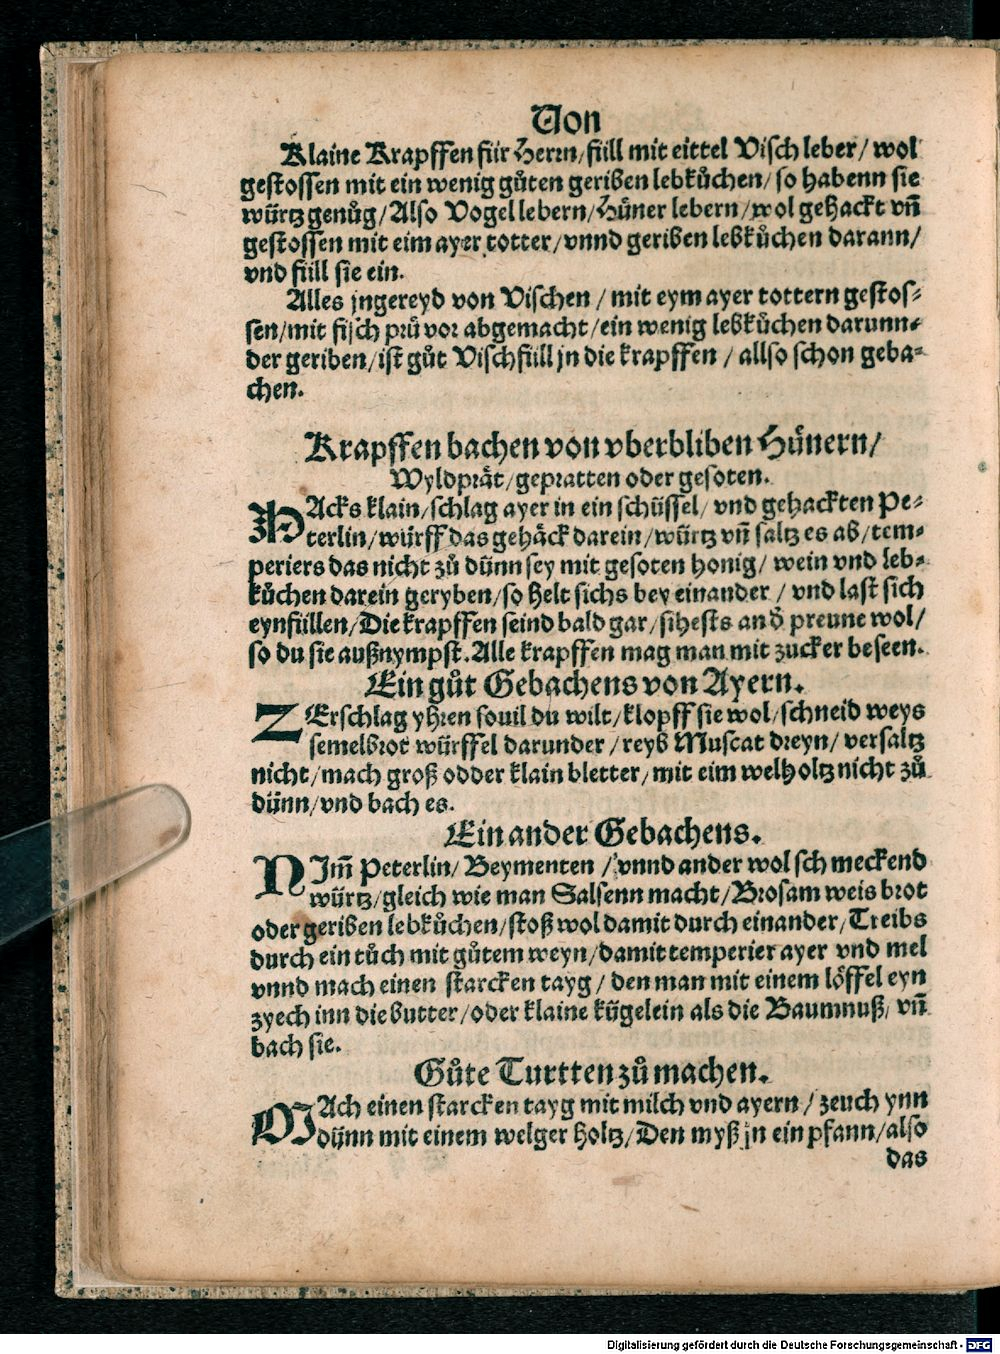 Von
Klaine Krapffen für Herrn/füll mit eittel Visch leber/ wol
gestossen mit ein wenig gůten geriben lebkůchen/ so habenn sie
würtz genůg/Also Vogel lebern/Hüner lebern/wol gehackt vñ
gestossen mit eim ayer totter/vnnd geriben lebkůchen darann/
vnd füll sie ein.
Alles jngereyd von Vischen / mit eym ayer tottern gestos⸗
sen/mit fisch prü vor abgemacht/ein wenig lebkůchen darunn⸗
der geriben/ist gůt Vischfüll jn die krapffen / allso schon geba⸗
chen.
Krapffen bachen von vberbliben Hünern/
Wyldprät/gepratten oder gesoten.
HAcks klain/schlag ayer in ein schüssel/ vnd gehackten Pe⸗
terlin/würff das gehäck darein/würtz vñ saltz es ab/tem⸗
periers das nicht zů dünn sey mit gesoten honig/ wein vnd leb⸗
kůchen darein geryben/so helt sichs bey einander / vnd last sich
eynfüllen/Die krapffen seind bald gar/sihests an d̉ preune wol/
so du sie außnympst.Alle krapffen mag man mit zucker beseen.
Ein gůt Gebachens von Ayern.
ZErschlag yhren souil du wilt/klopff sie wol/schneid weys
semelbrot würffel darunder /reyb Muscat dreyn/ versaltz
nicht/mach groß odder klain bletter/mit eim welholtz nicht zů
dünn/vnd bach es.
Ein ander Gebachens.
NIm̃ Peterlin/ Beymenten / vnnd ander wol schmeckend
würtz/gleich wie man Salsenn macht/Brosam weis brot
oder geriben lebkůchen/stoß wol damit durch einander/Treibs
durch ein tůch mit gůtem weyn/damit temperier ayer vnd mel
vnnd mach einen starcken tayg / den man mit einem löffel eyn
zyech inn die butter/oder klaine kügelein als die Baumnuß/ vñ
bach sie.
Gůte Turtten zů machen.
MAch einen starcken tayg mit milch vnd ayern / zeuch ynn
dünn mit einem welger holtz/Den myß jn ein pfann/also
das
Digitalisierung gefördert durch die Deutsche Forschungsgemeinschaft - DFG